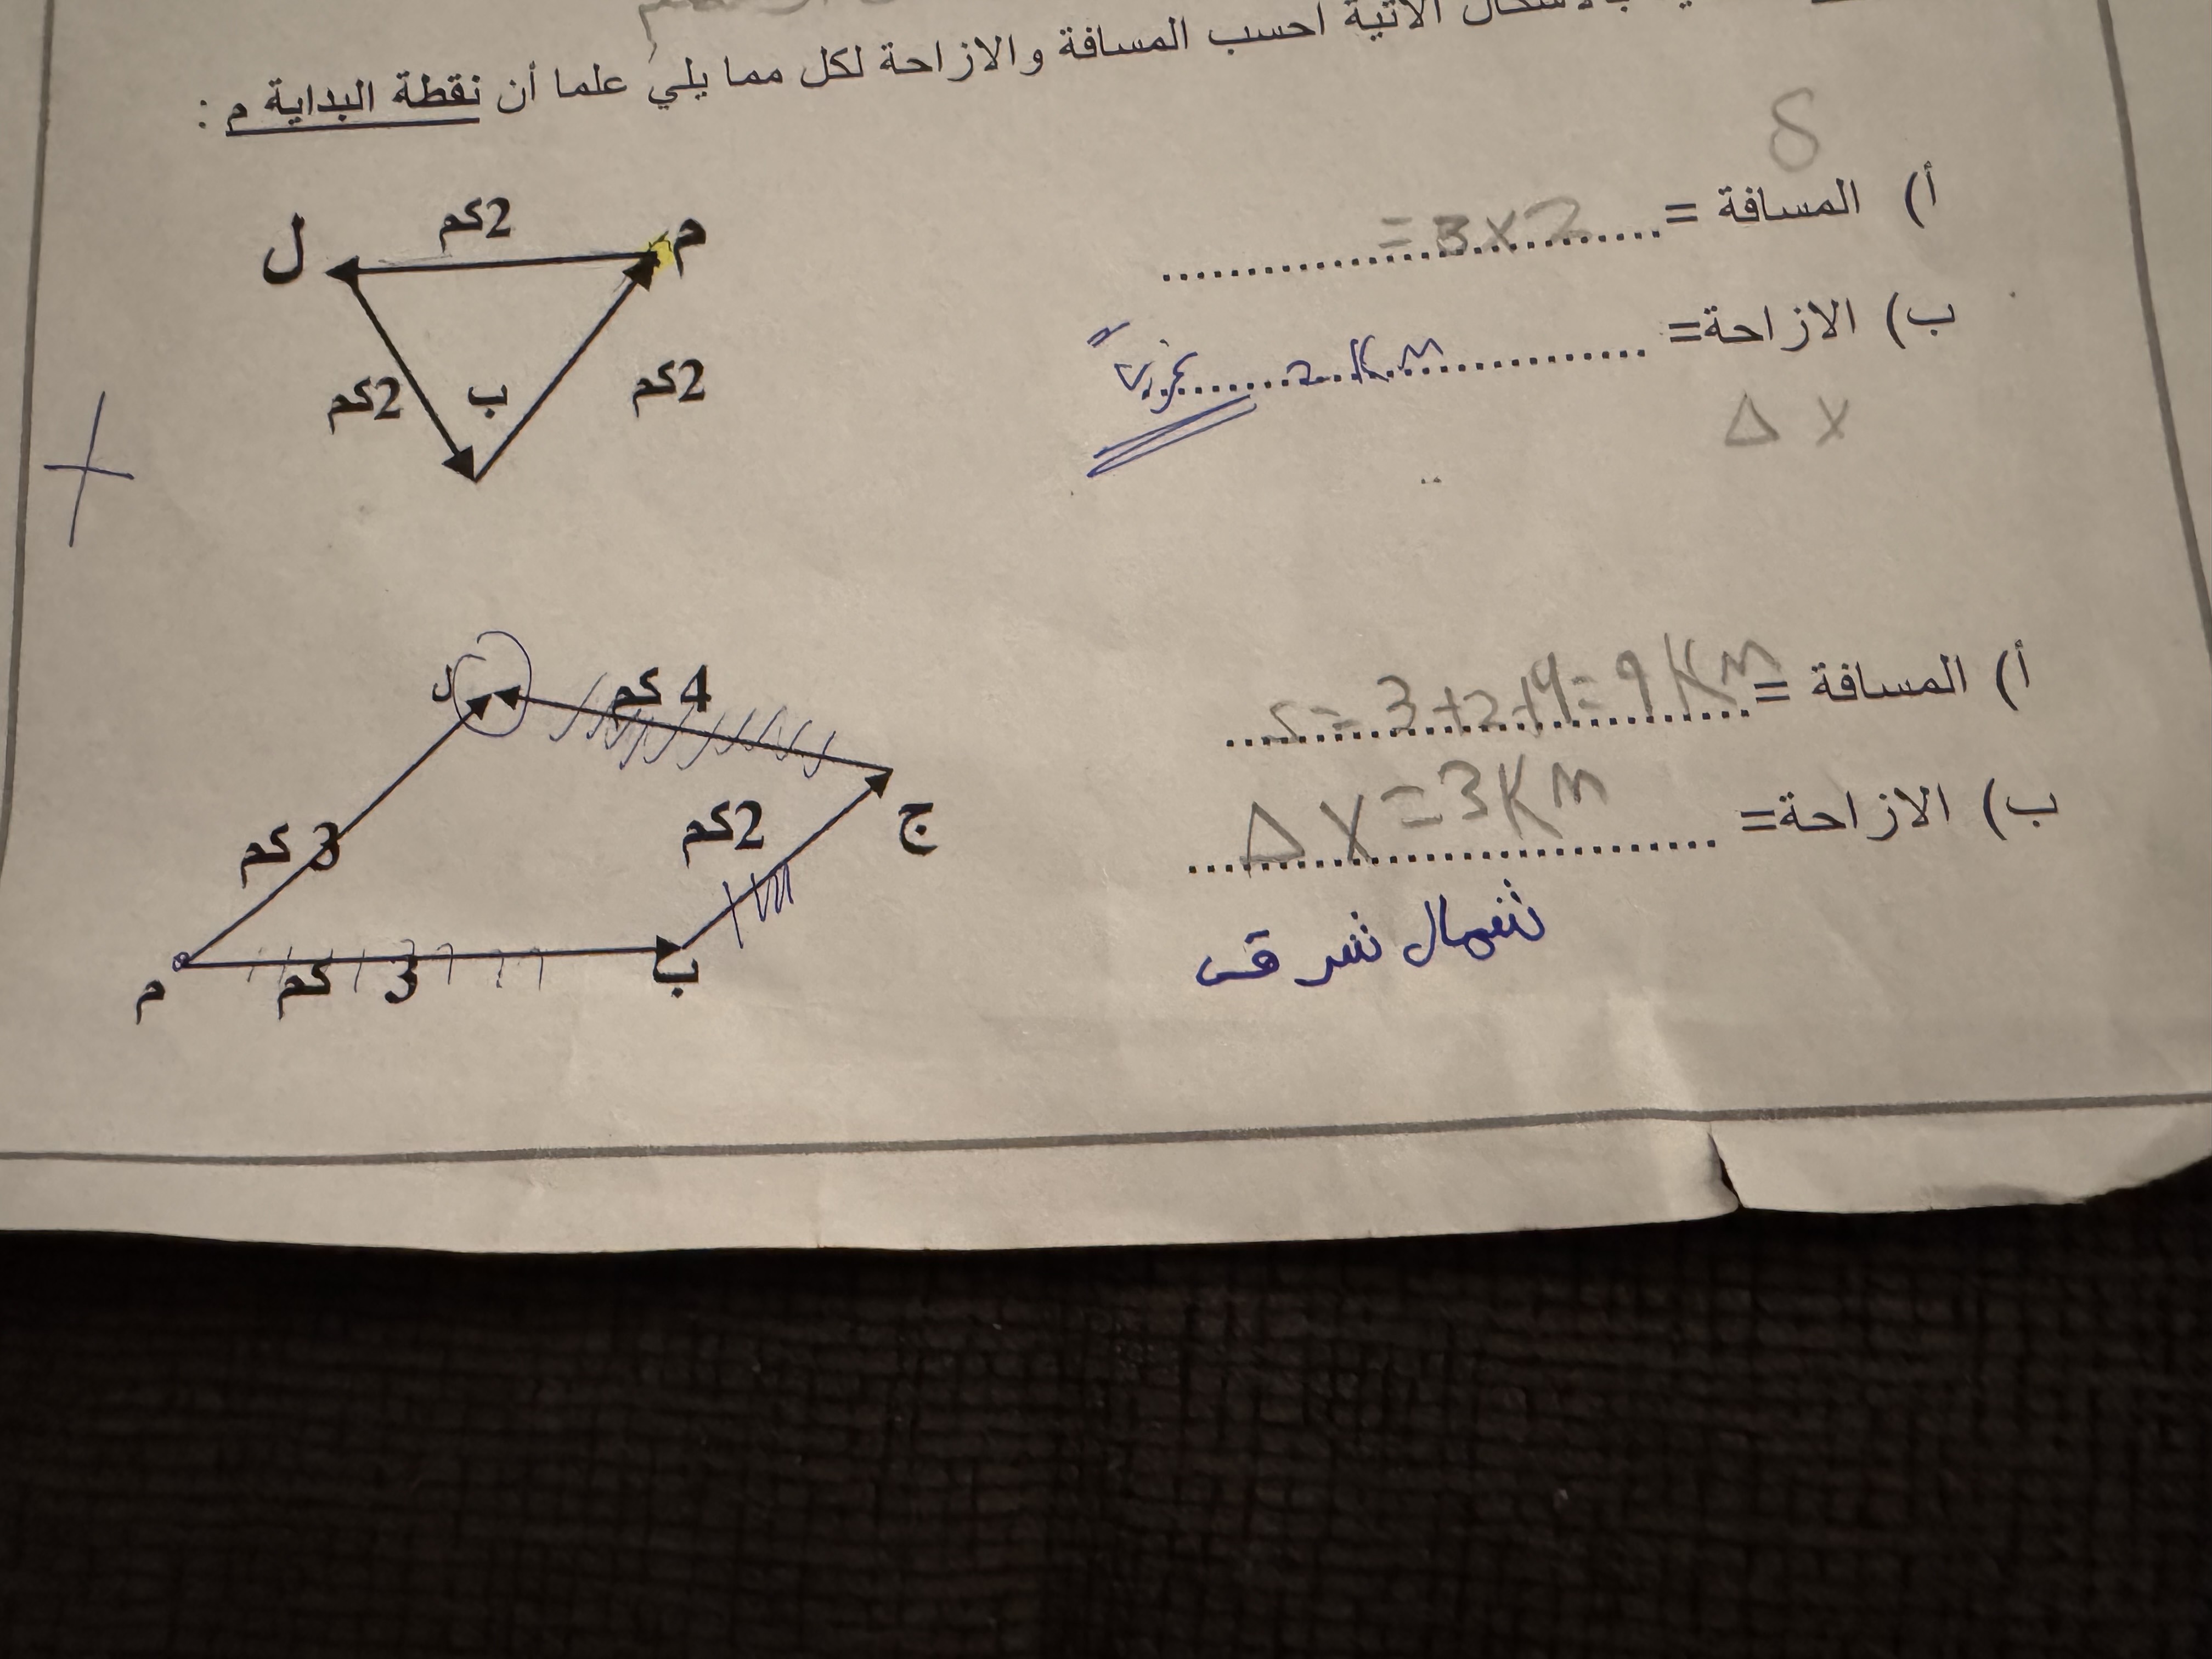 الآتية احسب المسافة والازاحة لكل مما يلي علما أن نقطة البداية م :
δ
أ) المسافة = ............ = 3x2
ب) الازاحة= ............ 2 Km غربًا
Δ X
ل
2كم
م
2كم
ب
2كم
أ) المسافة = ............ S = 3+2+4= 9 Km
ب) الازاحة= ............ Δ X = 3 Km
شمال شرق
ل
4 كم
3 كم
2كم
ج
م
3 كم
ب